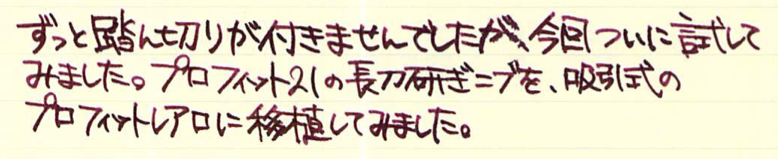 ずっと踏ん切りが付きませんでしたが、今回ついに試して
みました。プロフィット21の長刀研ぎニブを、吸引式の
プロフィットレアロに移植してみました。